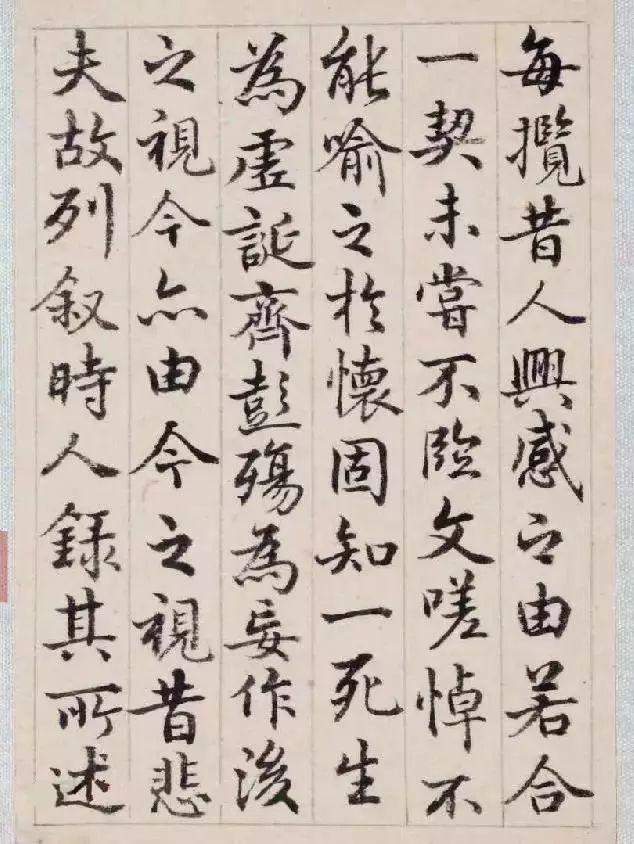 每攬昔人興感之由若合
一契未嘗不臨文嗟悼不
能喻之於懷固知一死生
為虛誕齊彭殤為妄作後
之視今亦由今之視昔悲
夫故列敘時人錄其所述